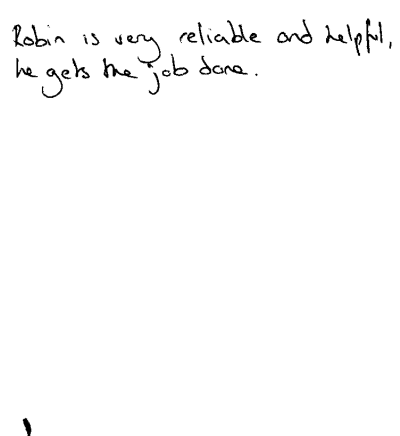 Robin is very reliable and helpful,
he gets the job done.